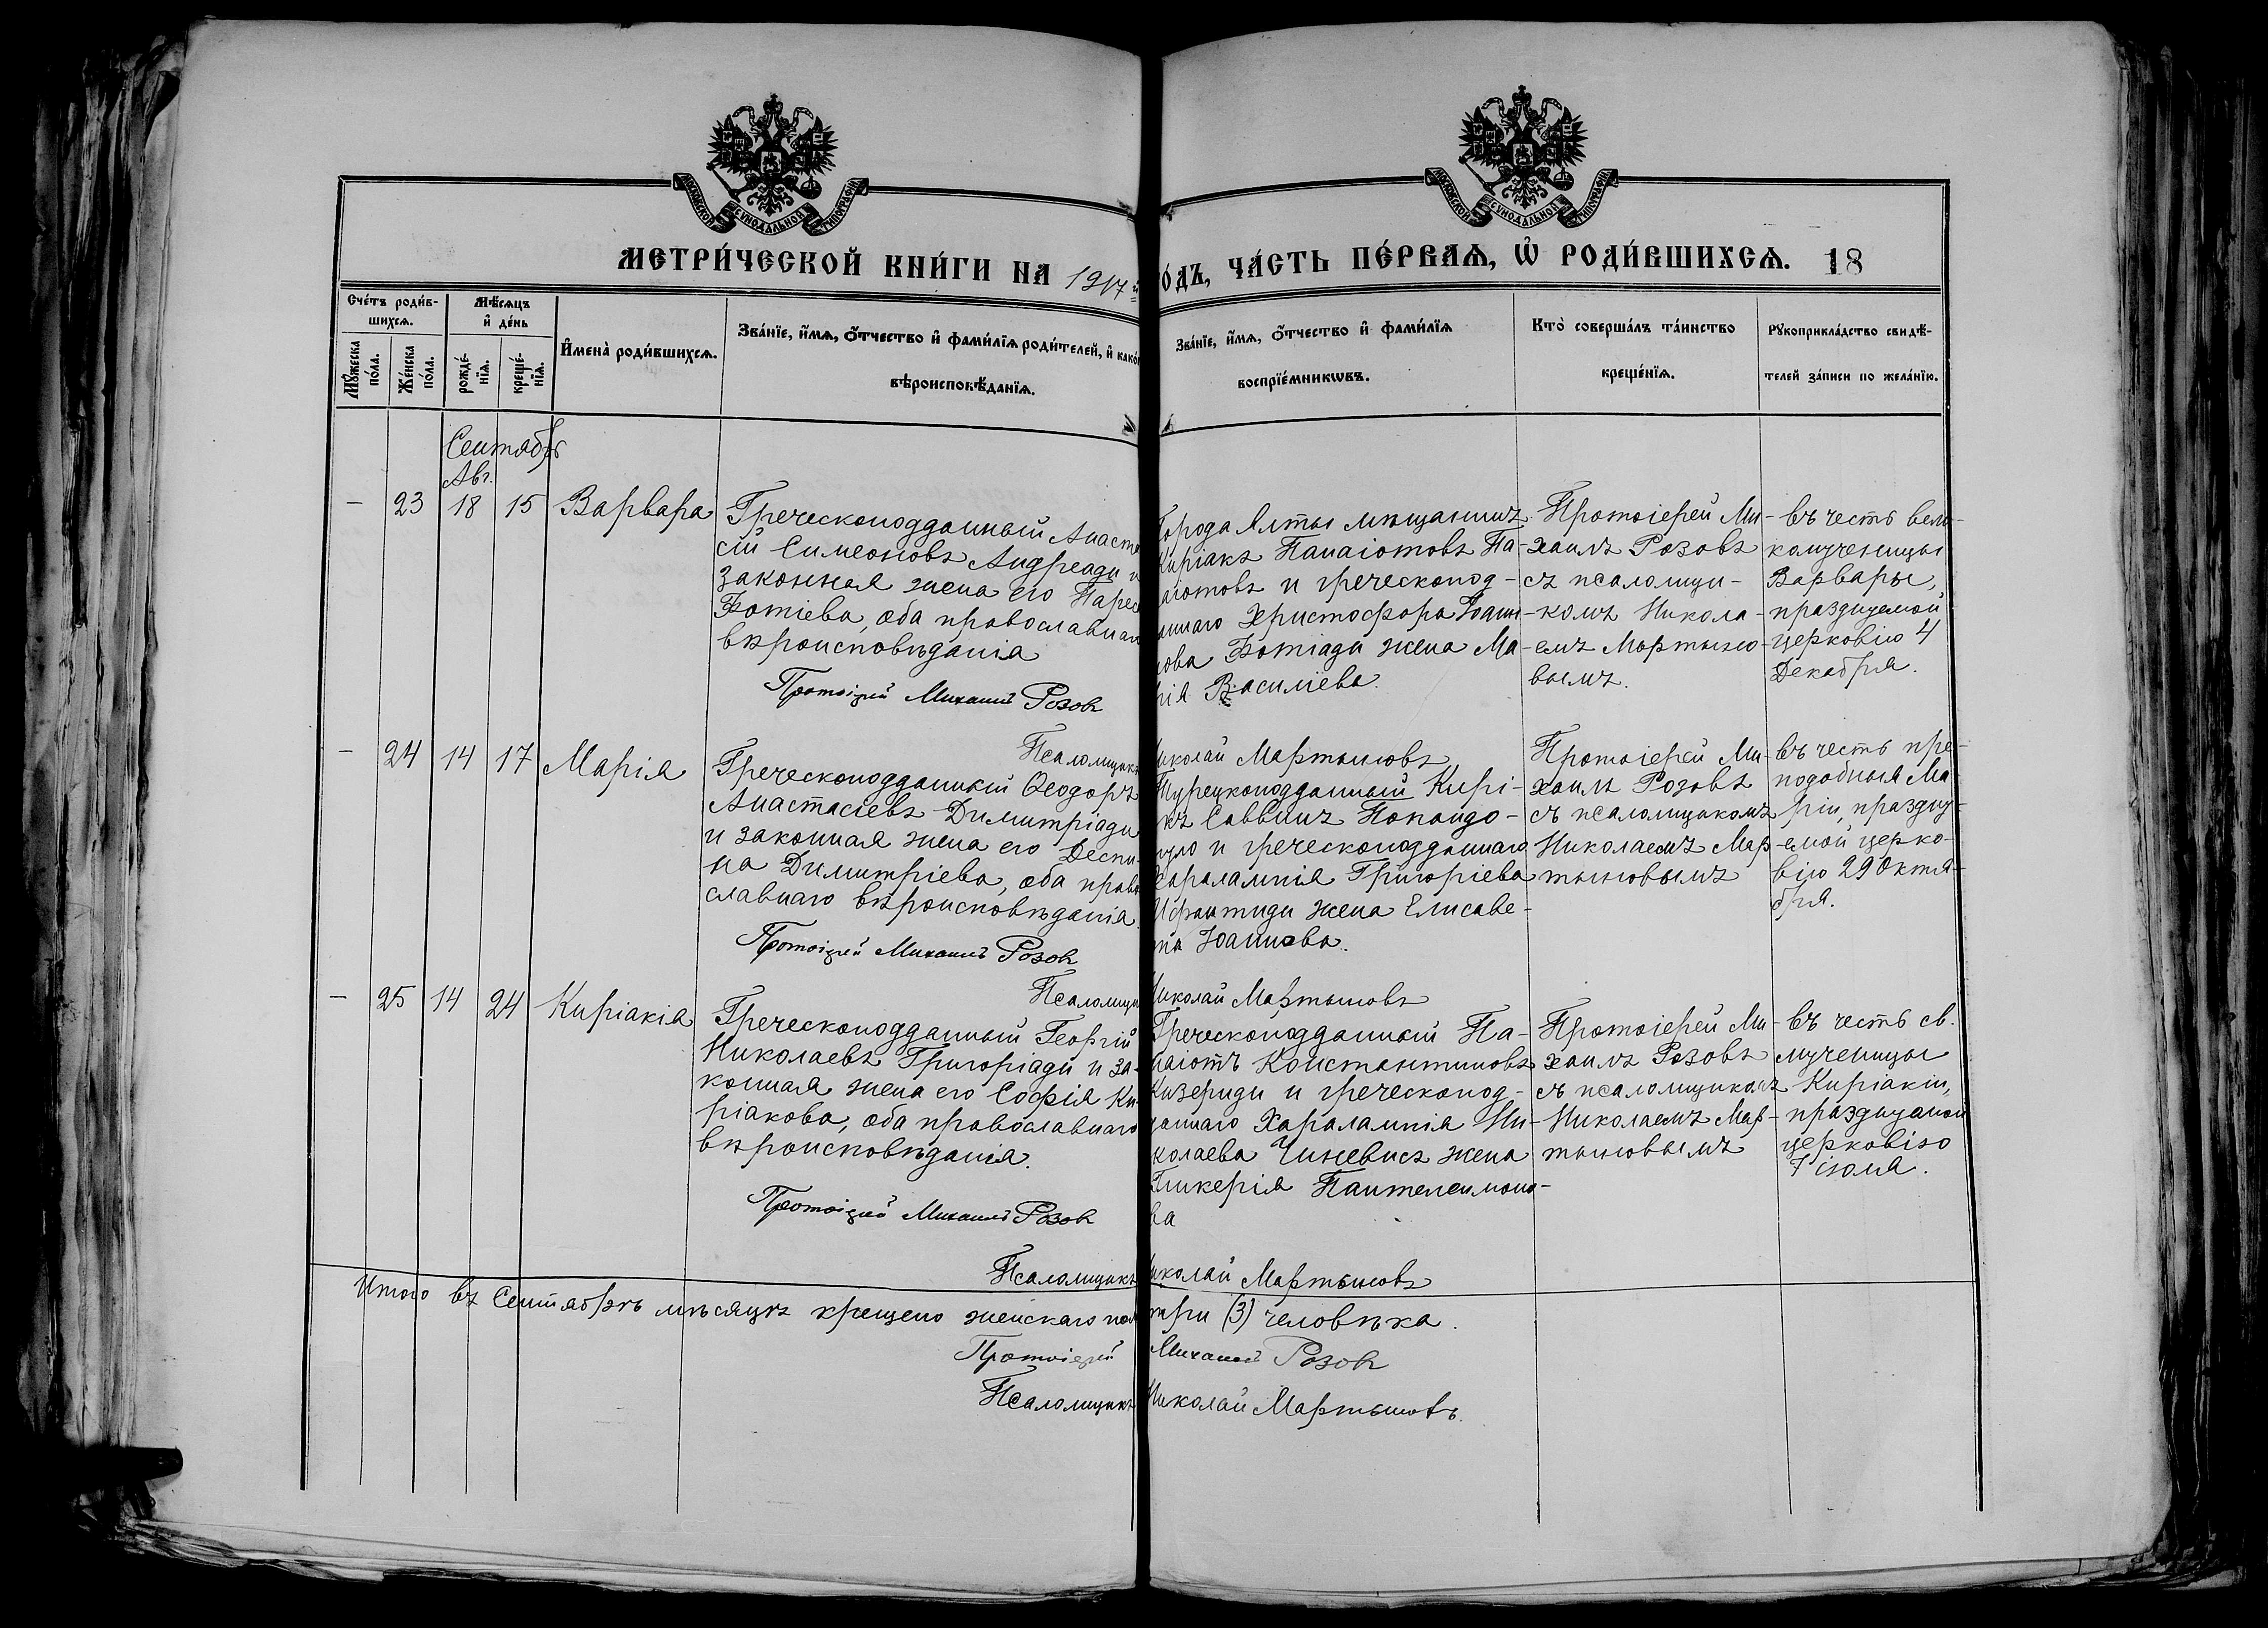 МОСКОВСКОЙ СѴНОДАЛЬНОЙ ТИПОГРАФІИ
МОСКОВСКОЙ СѴНОДАЛЬНОЙ ТИПОГРАФІИ
МЕТРИ́ЧЕСКОЙ КНИ́ГИ НА 1917й
ГО́ДЪ, ЧА́СТЬ ПЕ́РВАѦ, Ѡ҆ РОДИ́ВШИХСѦ. 18
Сче́тъ роди́вшихсѧ.
Мꙋ́жеска по́ла.
Же́нска по́ла.
Мѣ́сѧцъ и҆ де́нь
рожде́нїѧ.
креще́нїѧ.
И҆мена̀ роди́вшихсѧ.
Зва́нїе, и҆́мѧ, ѻ҆́тчество и҆ фами́лїѧ роди́телей, и҆ како́
вѣроисповѣ́данїѧ.
Зва́нїе, и҆́мѧ, ѻ҆́тчество и҆ фами́лїѧ
воспрїе́мникѡвъ.
Кто̀ соверша́лъ та́инство
креще́нїѧ.
Рꙋкоприкла́дство свидѣ́-
телей за́писи по жела́нїю.
Сентябрь
Авг.
— 23 18 15 Варвара
Греческоподданный Анаста
сій Симеоновъ Андреади и
законная жена его Парас
Фотіева, оба православнаго
вѣроисповѣданія
Протоіерей Михаилъ Розовъ
Города Ялты мѣщанинъ
Киріакъ Панаіотовъ Па-
наіотовъ и греческопод-
даннаго Христофора Іоан-
нова Фотіади жена Ма-
рія Василіева.
Протоіерей Ми-
хаилъ Розовъ
съ псаломщи-
комъ Никола-
емъ Мартыно-
вымъ.
въ честь вели-
комученицы
Варвары,
празднуемой
церковію 4
Декабря.
Псаломщикъ Николай Мартыновъ
— 24 14 17 Марія
Греческоподданный Ѳеодоръ
Анастасіевъ Димитріади
и законная жена его Деспи-
на Димитріева, оба право
славнаго вѣроисповѣданія.
Протоіерей Михаилъ Розовъ
Турецкоподданный Кирі-
къ Саввинъ Попандо-
пуло и греческоподданнаго
Харалампія Григоріева
жена Елисаве-
та Іоаннова.
Протоіерей Ми-
хаилъ Розовъ
съ псаломщикомъ
Николаемъ Мар-
тыновымъ
въ честь пре-
подобныя Ма-
ріи, праздну-
емой церко-
вію 29 Октя-
бря.
Псаломщикъ Николай Мартыновъ
— 25 14 24 Киріакія
Греческоподданный Георгій
Николаевъ Григоріади и за-
конная жена его Софія Ки-
ріакова, оба православнаго
вѣроисповѣданія.
Протоіерей Михаилъ Розовъ
Греческоподданный Па-
наіотъ Константиновъ
Кизериди и греческопод-
даннаго Харалампія Ни-
колаева жена
Гликерія Пантелеимоно-
ва
Протоіерей Ми-
хаилъ Розовъ
съ псаломщикомъ
Николаемъ Мар-
тыновымъ
въ честь св.
мученицы
Киріакіи,
празднуемой
церковію
7 іюля.
Псаломщикъ Николай Мартыновъ
Итого въ Сентябрѣ мѣсяцѣ крещено женскаго пола три (3) человѣка.
Протоіерей Михаилъ Розовъ
Псаломщикъ Николай Мартыновъ.